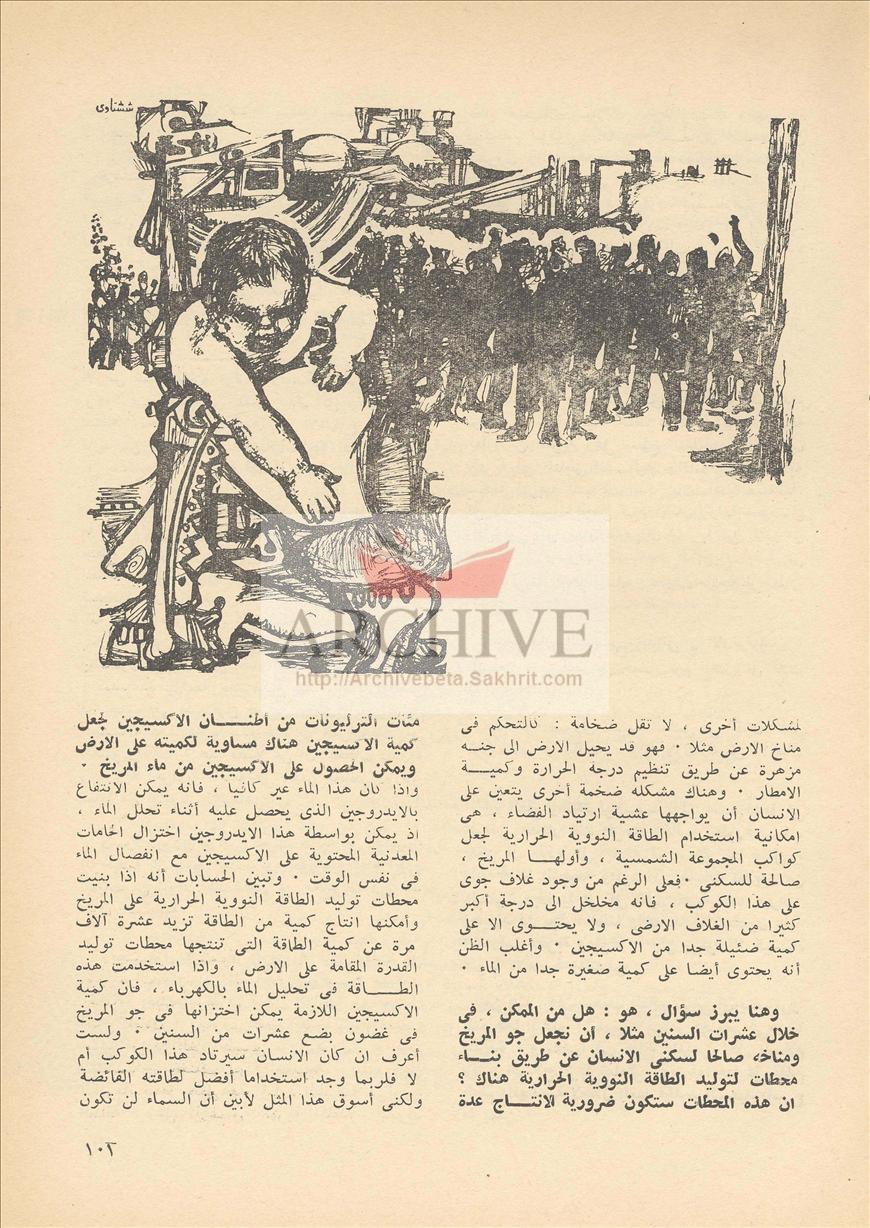 ششتاوى
ARCHIVE
http://Archivebeta.Sakhrit.com
لمشكلات أخرى ، لا تقل ضخامة : كالتحكم فى
مناخ الارض مثلا ٠ فهو قد يحيل الارض الى جنــه
مزهرة عن طريق تنظيم درجة الحرارة وكميـــة
الامطار ٠ وهناك مشكله ضخمة أخرى يتعين على
الانسان أن يواجهها عشية ارتياد الفضاء ، هى
امكانية استخدام الطاقة النووية الحرارية لجعل
كواكب المجموعة الشمسية ، وأولهــا المريخ ،
صالحة للسكنى ٠فعلى الرغم من وجود غلاف جوى
على هذا الكوكب ، فانه مخلخل الى درجة أكبر
كثيرا من الغلاف الارضى ، ولا يحتــوى الا على
كمية ضئيلة جدا من الاكسيجين ٠ وأغلب الظن
أنه يحتوى أيضا على كمية صغيرة جدا من الماء ٠
وهنا يبرز سؤال ، هو : هل من الممكن ، فى
خلال عشرات السنين مثلا ، أن نجعل جو المريخ
ومناخه صالحا لسكنى الانسان عن طريق بنــاء
محطات لتوليد الطاقة النووية الحرارية هناك ؟
ان هذه المحطات ستكون ضرورية لانتــاج عدة
مئات التريليونات من أطنـــان الاكسيجين لجعل
كمية الاكسيجين هناك مساوية لكميته على الارض
ويمكن الحصول على الاكسيجين من ماء المريخ ٠
واذا كان هذا الماء غير كافيا ، فانه يمكن الانتفاع
بالايدروجين الذى يحصل عليه أثناء تحلل الماء ،
اذ يمكن بواسطة هذا الايدروجين اختزال الخامات
المعدنية المحتوية على الاكسيجين مع انفصال الماء
فى نفس الوقت ٠ وتبين الحسابات أنه اذا بنيت
محطات توليد الطاقة النووية الحرارية على المريخ
وأمكنها انتاج كمية من الطاقة تزيد عشرة آلاف
مرة عن كمية الطاقة التى تنتجها محطات توليد
القدرة المقامة على الارض ، واذا استخدمت هذه
الطـــاقة فى تحليل الماء بالكهرباء ، فان كمية
الاكسيجين اللازمة يمكن اختزانها فى جو المريخ
فى غضون بضع عشرات من السنين ٠ ولست
أعرف ان كان الانسان سيرتاد هذا الكوكب أم
لا فلربما وجد استخداما أفضل لطاقته الفائضة
ولكنى أسوق هذا المثل لأبين أن السماء لن تكون